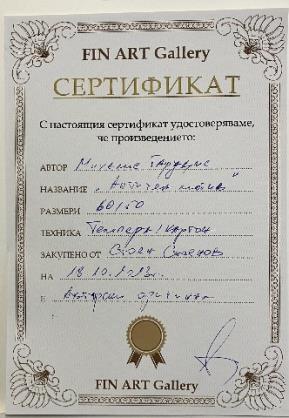 FIN ART Gallery
СЕРТИФИКАТ
С настоящия сертификат удостоверяваме,
че произведението:
АВТОР
НАЗВАНИЕ „Античен мотив“
РАЗМЕРИ 60/50
ТЕХНИКА Темпера/картон
ЗАКУПЕНО ОТ Стоян
НА 18.10.
Е Авторски оригинал
FIN ART Gallery